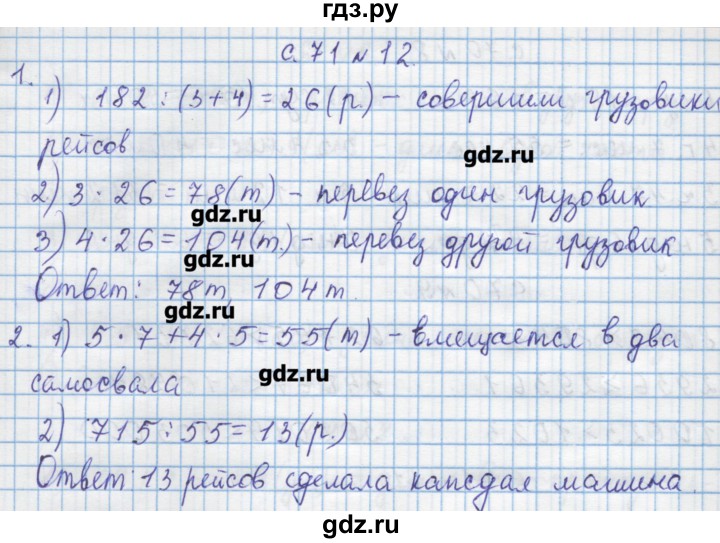 гдз.ру
с. 71 № 12.
1.
1) 182 : (3+4) = 26 (р.) – совершили грузовики
рейсов
gdz.ru
2) 3 · 26 = 78 (т) – перевез один грузовик
gdz.ru
3) 4 · 26 = 104 (т.) – перевез другой грузовик
gdz.ru
Ответ: 78 т, 104 т.
gdz.ru
2. 1) 5 · 7 + 4 · 5 = 55 (т) – вмещается в два
самосвала
gdz.ru
2) 715 : 55 = 13 (р.)
Ответ: 13 рейсов сделала каждая машина.
gdz.ru